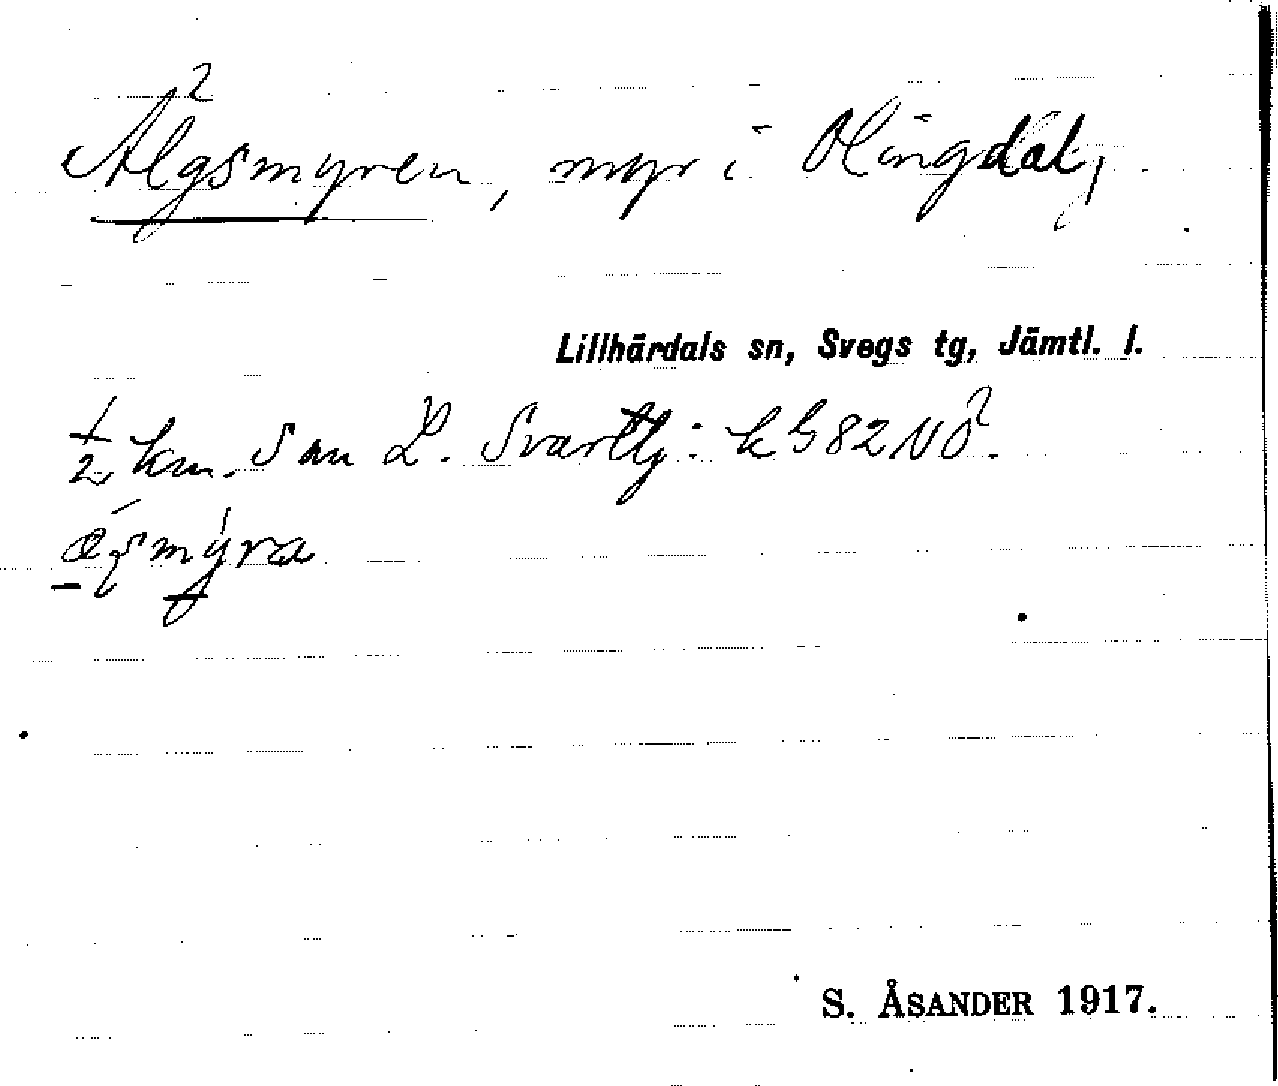 Älgsmyren, myr i Olingdal,
Lillhärdals sn, Svegs tg, Jämtl. l.
1/2 km. S om L. Svarttj: k G82NÖ.
S. ÅSANDER 1917.